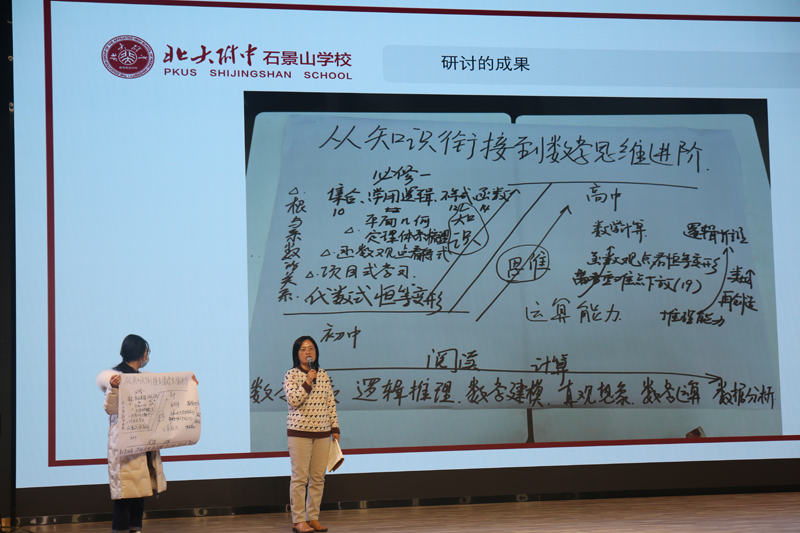 北大附中 石景山学校
PKUS SHIJINGSHAN SCHOOL
研讨的成果
从知识衔接到数学思维进阶.
必修一
△. 集合、常用逻辑、不等式、函数
10
平面几何
知识
△. 定理体系
△. 函数观点看
△. 项目式学习.
代数式恒等变形
根与系数的关系.
初中
思维
高中
数学计算.
逻辑
函数观点看恒等变形
重难点下放(19)
再创造
运算能力.
推理能力
阅读 计算
逻辑推理、数学建模、直观想象、数学运算 数据分析